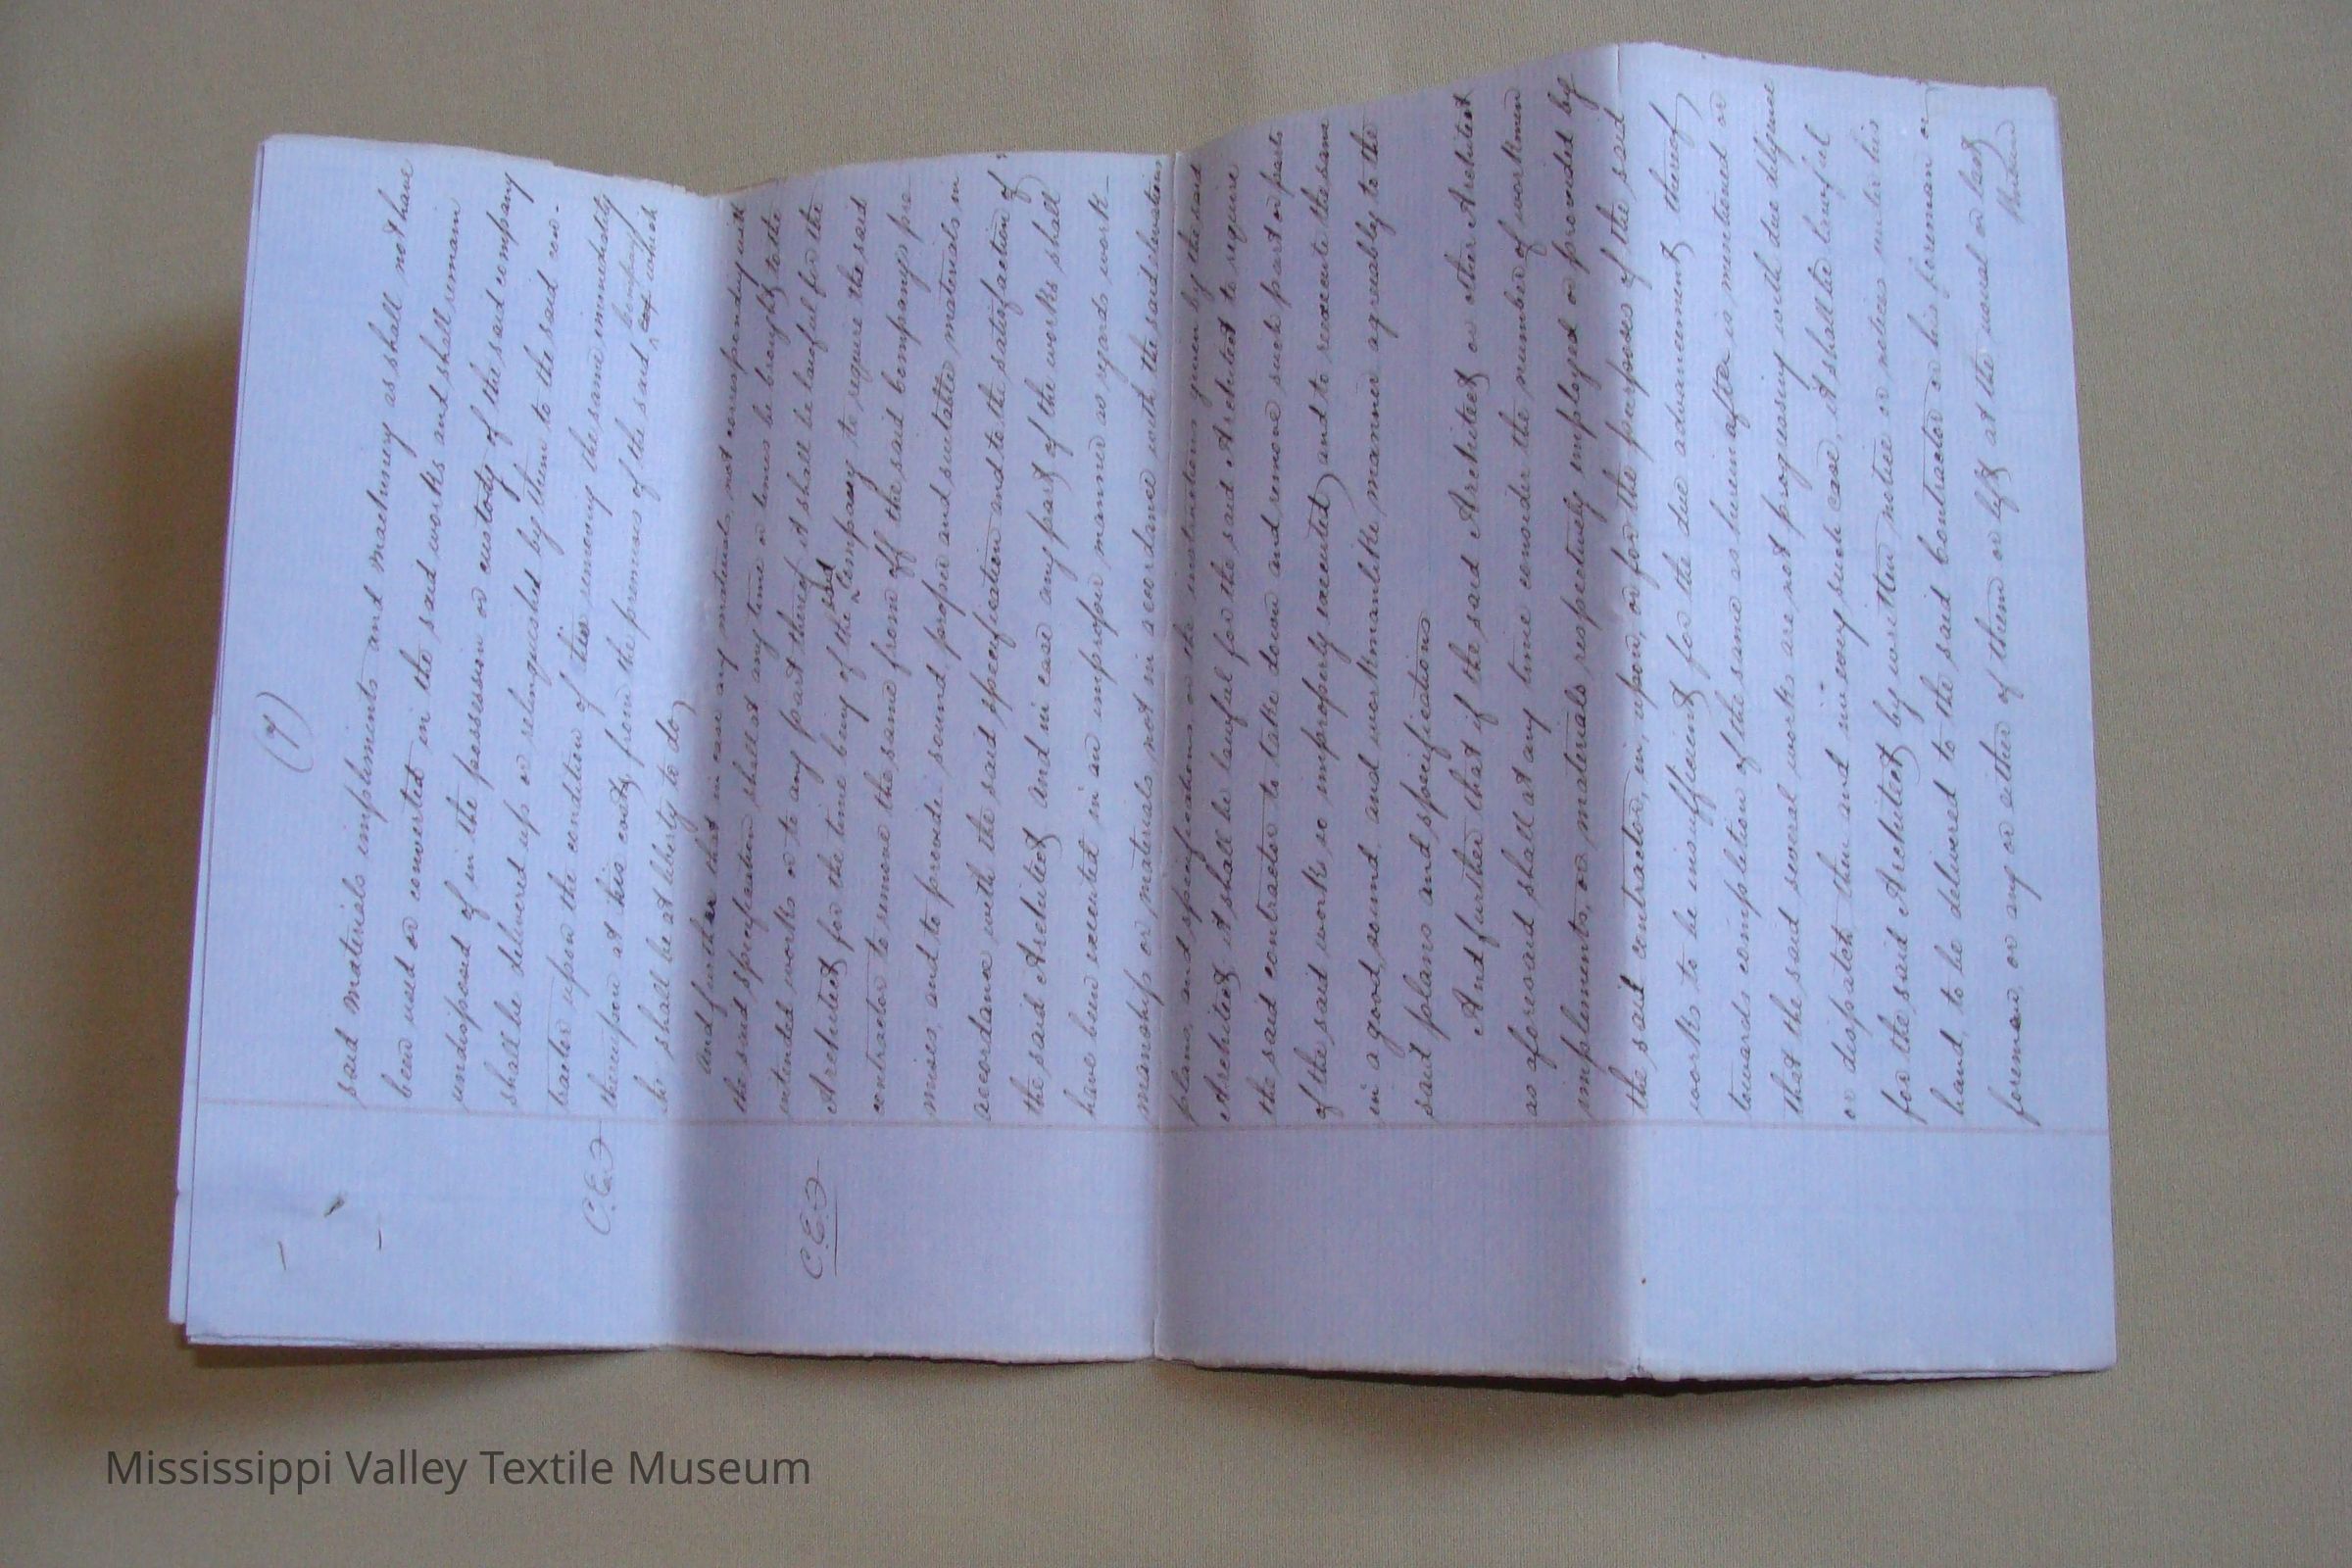 (9)
said materials implements and machinery as shall not have
been used or converted in the said works and shall remain
undisposed of in the possession or custody of the said company
shall be delivered up or relinquished by them to the said con-
tractor upon the condition of his removing the same immediately
C.E.J thereupon at his costs from the premises of the said company which
he shall be at liberty to do
And further that in case any materials not corresponding with
the said specification shall at any time or times be brought to the
intended works or to any part thereof it shall be lawful for the
C.E.J Architect for the time being of the said Company to require the said
contractor to remove the same from off the said company's pre
mises, and to provide sound proper and suitable materials in
accordance with the said specification and to the satisfaction of
the said Architect, and in case any part of the works shall
have been executed in an improper manner as regards work-
manship or materials not in accordance with the said elevations
plans, and specifications or the instructions given by the said
Architect it shall be lawful for the said Architect to require
the said contractor to take down and remove such part or parts
of the said works so improperly executed, and to reexecute the same
in a good, sound, and workmanlike manner agreeably to the
said plans and specifications
And further that if the said Architect or other Architect
as aforesaid shall at any time consider the number of workmen
implements, or materials respectively employed or provided by
the said contractor, in, upon, or for the purposes of the said
works to be insufficient for the due advancement thereof
towards completion of the same as herein after is mentioned or
that the said several works are not progressing with due diligence
or dispatch then and in every such case, it shall be lawful
for the said Architect by written notice or notices under his
hand, to be delivered to the said Contractor or his foreman or
foremen, or any or either of them or left at the usual or last
Mississippi Valley Textile Museum